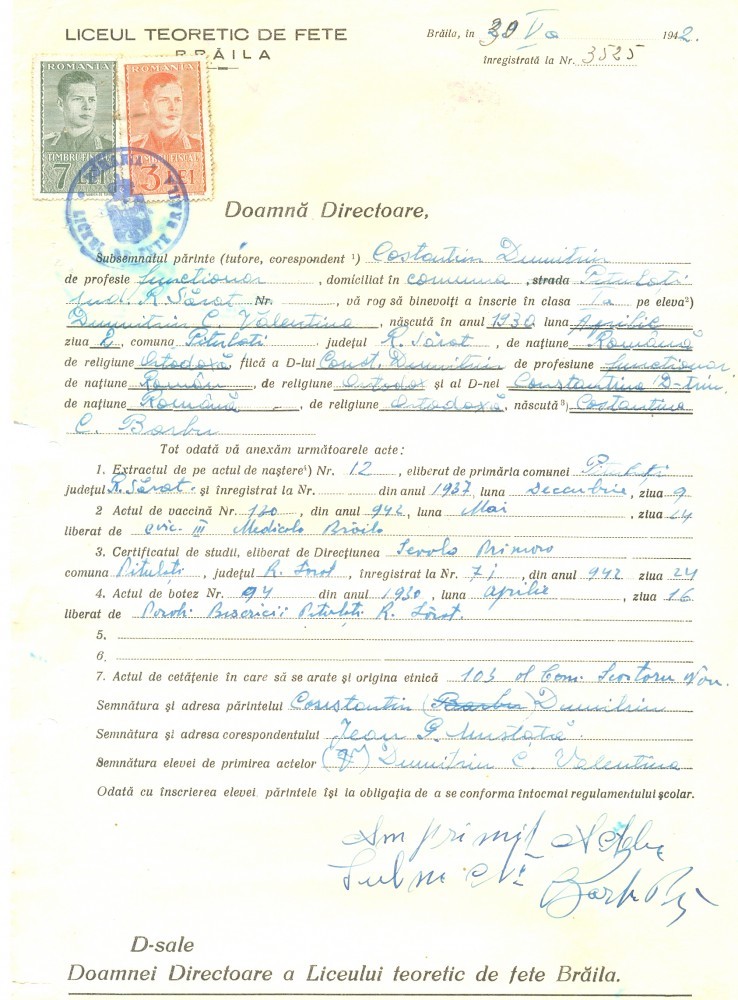 LICEUL TEORETIC DE FETE
BRĂILA
Brăila, în 30 Va 1942.
înregistrată la Nr. 3525
ROMANIA
TIMBRU FISCAL
7 LEI
ROMANIA
TIMBRU FISCAL
3 LEI
Doamnă Directoare,
Subsemnatul părinte (tutore, corespondent ¹) Costantin Dumitriu
de profesie functionar, domiciliat în comuna, strada Pitulati
Jud. R. Sărat Nr. , vă rog să binevoiți a înscrie în clasa Ia pe eleva²)
Dumitriu C. Valentina, născută în anul 1930 luna Aprilie
ziua 2, comuna Pitulati județul R. Sărat, de națiune Română
de religiune Ortodoxă, fiică a D-lui Const. Dumitriu de profesiune functionar
de națiune Român, de religiune Ortodox și al D-nei Constantina D-triu
de națiune Română, de religiune Ortodoxă, născută ³) Costantina
C. Barbu
Tot odată vă anexăm următoarele acte:
1. Extractul de pe actul de naștere⁴) Nr. 12, eliberat de primăria comunei Pitulați
județul R. Sărat și înregistrat la Nr. din anul 1937, luna Decembrie, ziua 9
2 Actul de vaccină Nr. 130, din anul 942, luna Mai, ziua 24
liberat de Medicala Brăila
3. Certificatul de studii, eliberat de Direcțiunea
comuna Pitulati, județul R. Sărat, înregistrat la Nr. 71, din anul 942 ziua 24
4. Actul de botez Nr. 94 din anul 1930, luna Aprilie, ziua 16
liberat de Paroh. Bisericii Pitulati R. Sărat.
5.
6.
7. Actul de cetățenie în care să se arate și origina etnică 103 al Com. Nou.
Semnătura și adresa părintelui Constantin (Barbu) Dumitriu
Semnătura și adresa corespondentului Jean G. Mustață
Semnătura elevei de primirea actelor Dumitriu C. Valentina
Odată cu înscrierea elevei părintele își ia obligația de a se conforma întocmai regulamentului școlar.
Am primit Actele
D-sale
Doamnei Directoare a Liceului teoretic de fete Brăila.